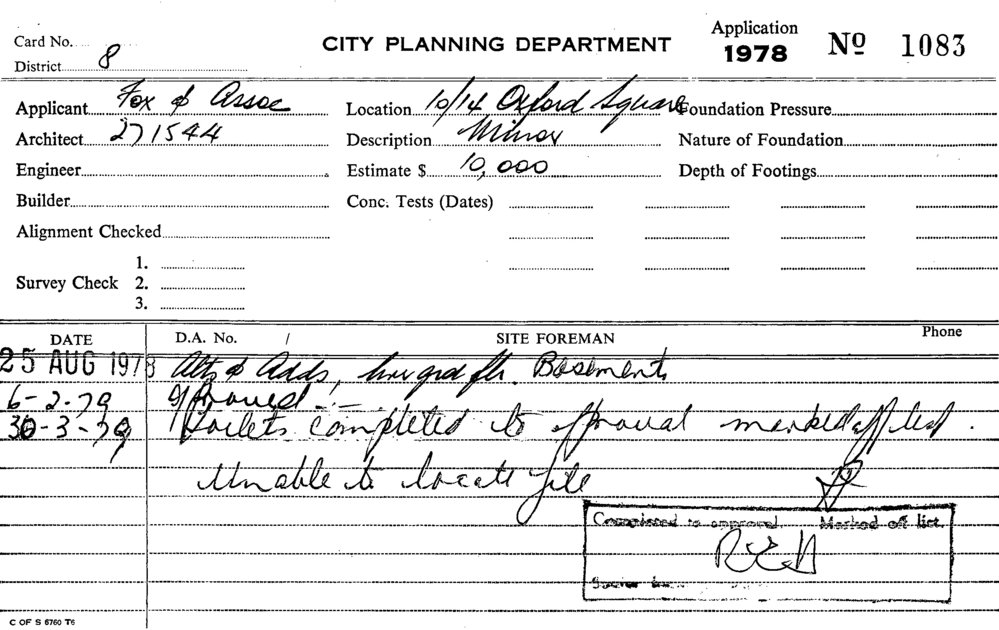 Card No.
District 8
CITY PLANNING DEPARTMENT
Application
1978 Nº 1083
Applicant Fox & Assoc Location 10/14 Oxford Square Foundation Pressure
Architect 271544 Description Minor Nature of Foundation
Engineer Estimate $ 10,000 Depth of Footings
Builder Conc. Tests (Dates)
Alignment Checked
Survey Check 1.
2.
3.
DATE D.A. No. / SITE FOREMAN Phone
25 AUG 1978 Alts & Adds, grd flr. Basement
6-2-79 approved
30-3-79 Toilets completed to approval marked off list.
Unable to locate file
Completed to approval. Marked off list.
C OF S 6760 T6